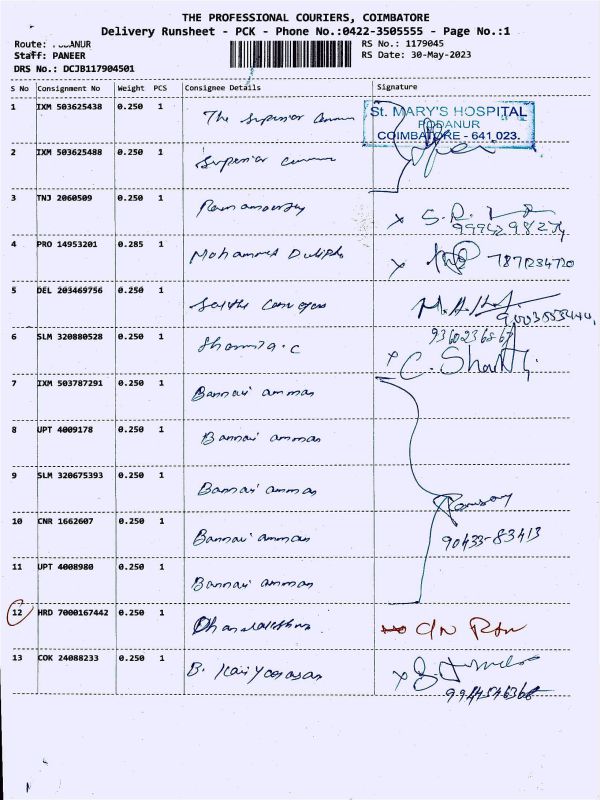 THE PROFESSIONAL COURIERS, COIMBATORE
Delivery Runsheet - PCK - Phone No.:0422-3505555 - Page No.:1
Route: PODANUR
RS No.: 1179045
Staff: PANEER
RS Date: 30-May-2023
DRS No.: DCJB117904501
S No Consignment No Weight PCS Consignee Details Signature
1 IXM 503625438 0.250 1 The Superior
St. MARY'S HOSPITAL
PODANUR
COIMBATORE - 641 023.
2 IXM 503625488 0.250 1 Superior
3 TNJ 2060509 0.250 1 Ramamoorthy
x S.R.
4 PRO 14953201 0.285 1 Mohammed
x 7871234720
5 DEL 203469756 0.250 1
6 SLM 320880528 0.250 1
x C. Shanthi
7 IXM 503787291 0.250 1 Bannari amman
8 UPT 4009178 0.250 1 Bannari amman
9 SLM 320675393 0.250 1 Bannari amman
10 CNR 1662607 0.250 1 Bannari amman
90433-83413
11 UPT 4008980 0.250 1 Bannari amman
12 HRD 7000167442 0.250 1
13 COK 24088233 0.250 1 B.
x